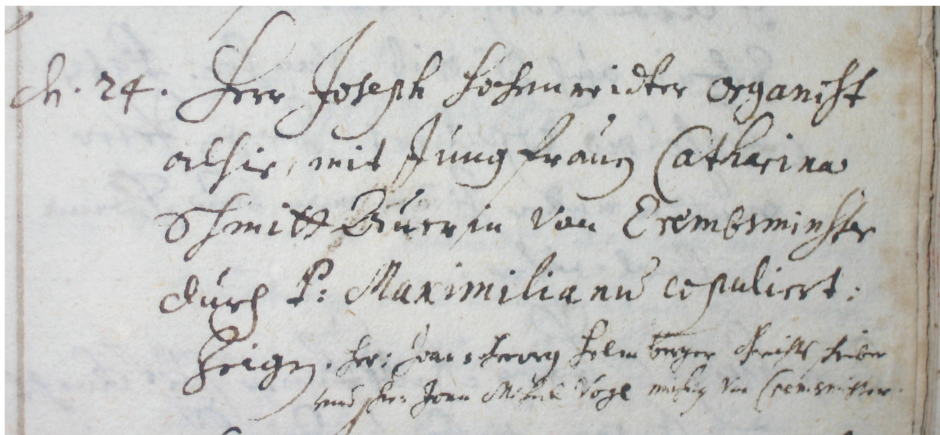 24. Herr Joseph Hohenreidter Organist
alhie, mit Jungfrauen Catharina
Schmittbäuerin von Crembsminster
durch P: Maximilianu copuliert:
Zeign. Her: Hans Georg Helmberger Gerichtschreiber
und Her: Johann Michael Vogl von Cremsmister.